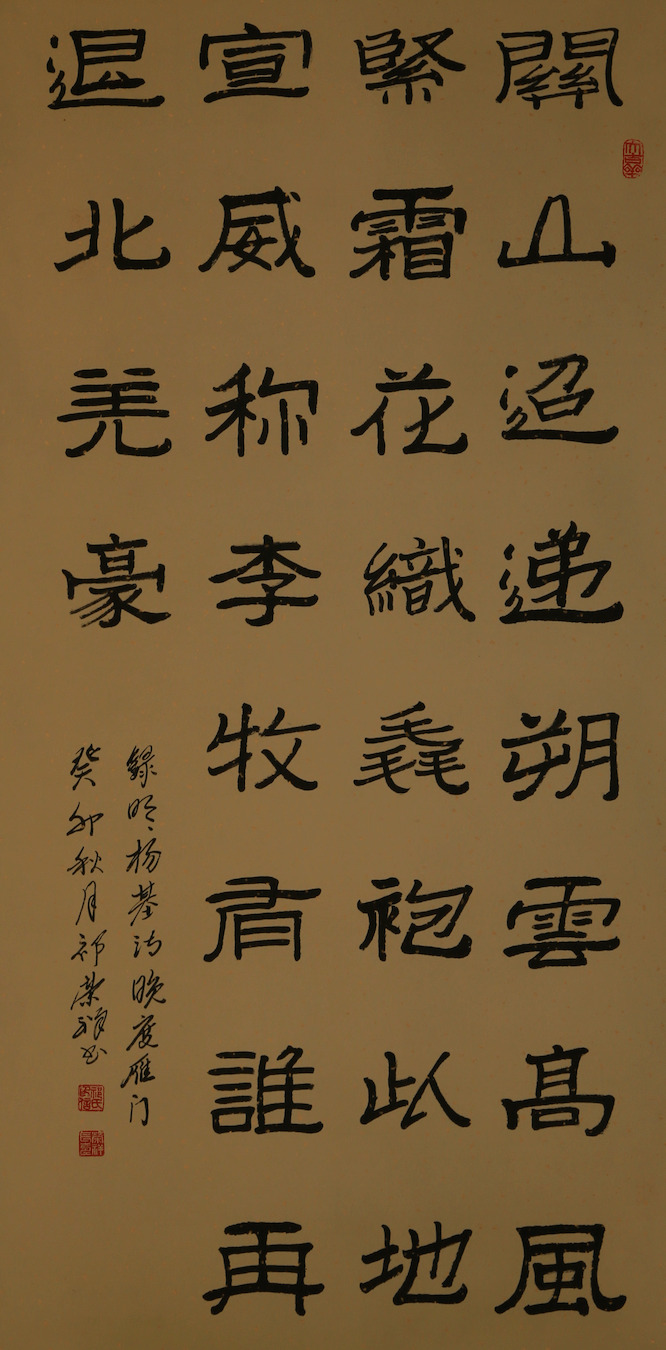 關山迢递朔雲高風
緊霜花織毳袍此地
宣威称李牧有誰再
退北羌豪
録明杨基诗晚度雁门
癸卯秋月祁荣祥书